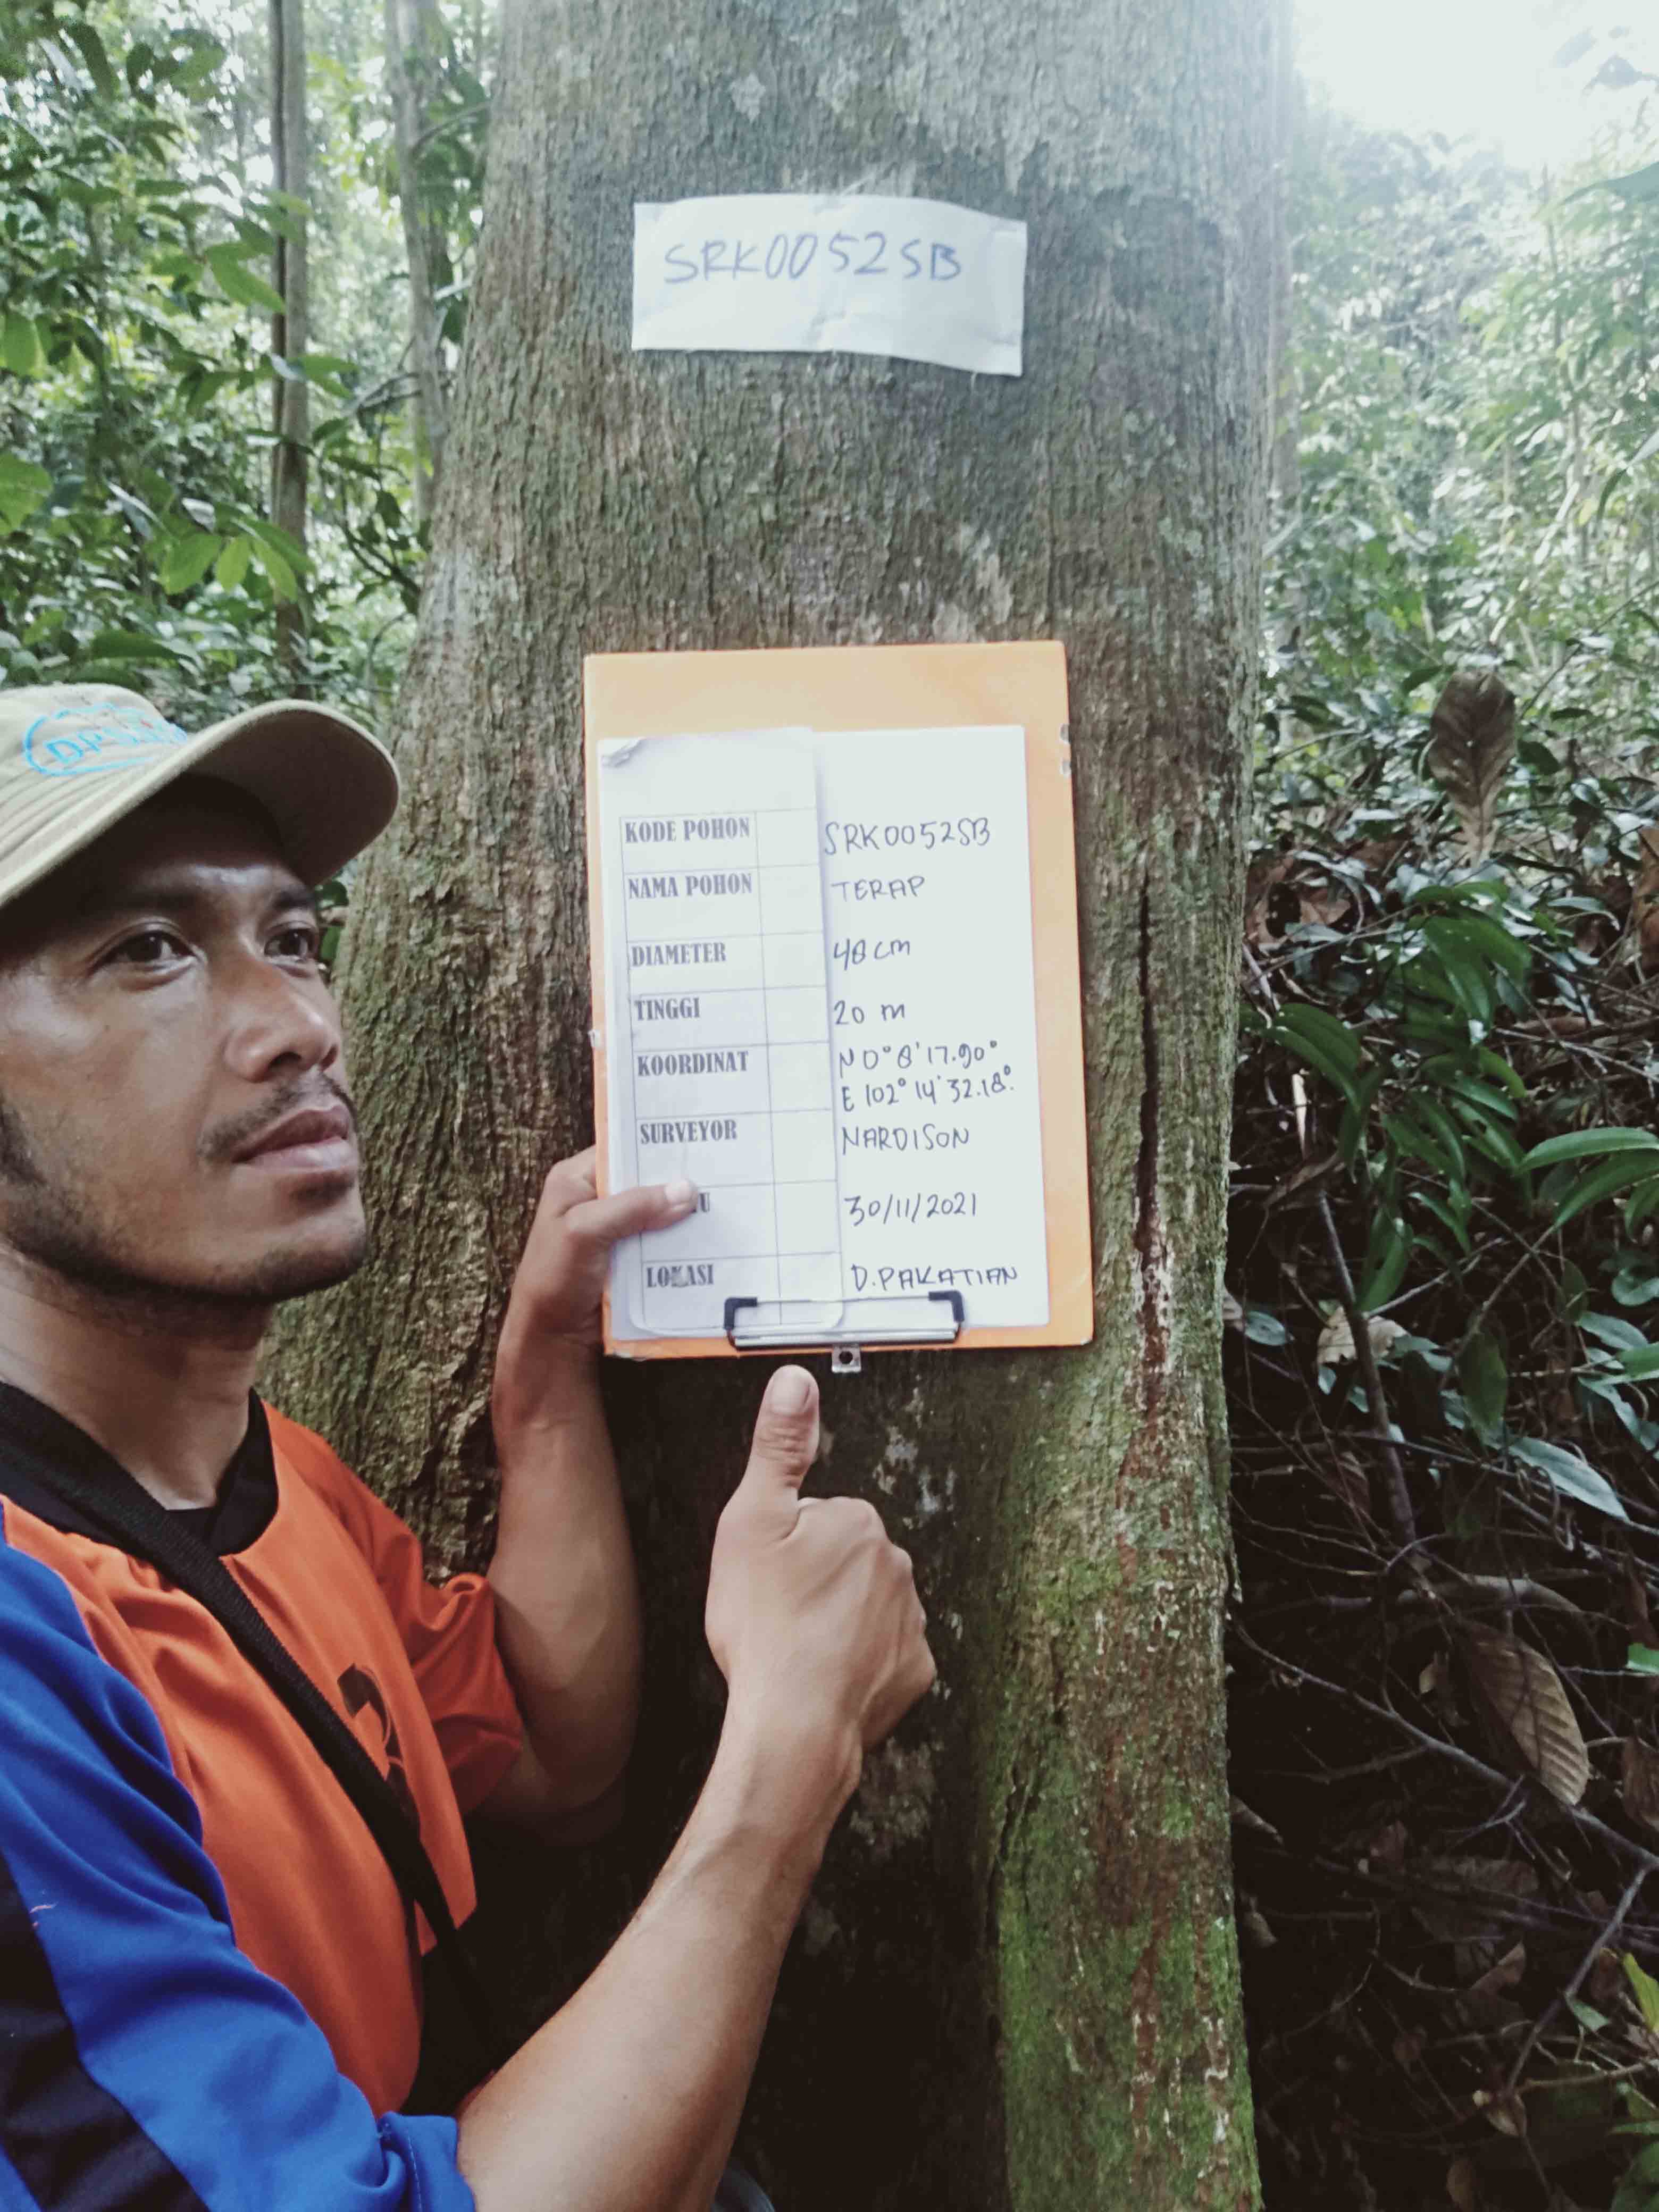 SRK0052SB
KODE POHON SRK0052SB
NAMA POHON TERAP
DIAMETER 48 cm
TINGGI 20 m
KOORDINAT N 0° 8' 17.90°
E 102° 14' 32.18°.
SURVEYOR NARDISON
30/11/2021
LOKASI D.PAKATIAN